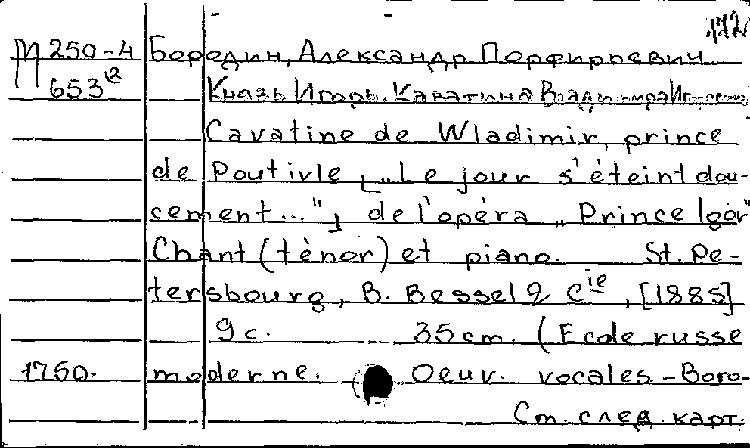 172
М 250-4 Бородин, Александр Порфирьевич
653¹² Князь Игорь. Каватина Владимира Игоревича
Cavatine de Wladimir, prince
de Poutivle [„Le jour s'éteint dou-
cement..."] de l'opéra „Prince Igor"
Chant (ténor) et piano. St. Pe-
tersbourg, B. Bessel & Cie, [1885]
9 с. 35 cm. (Ecole russe
1750. moderne. Oeuv. vocales - Boro-
См. след. карт.